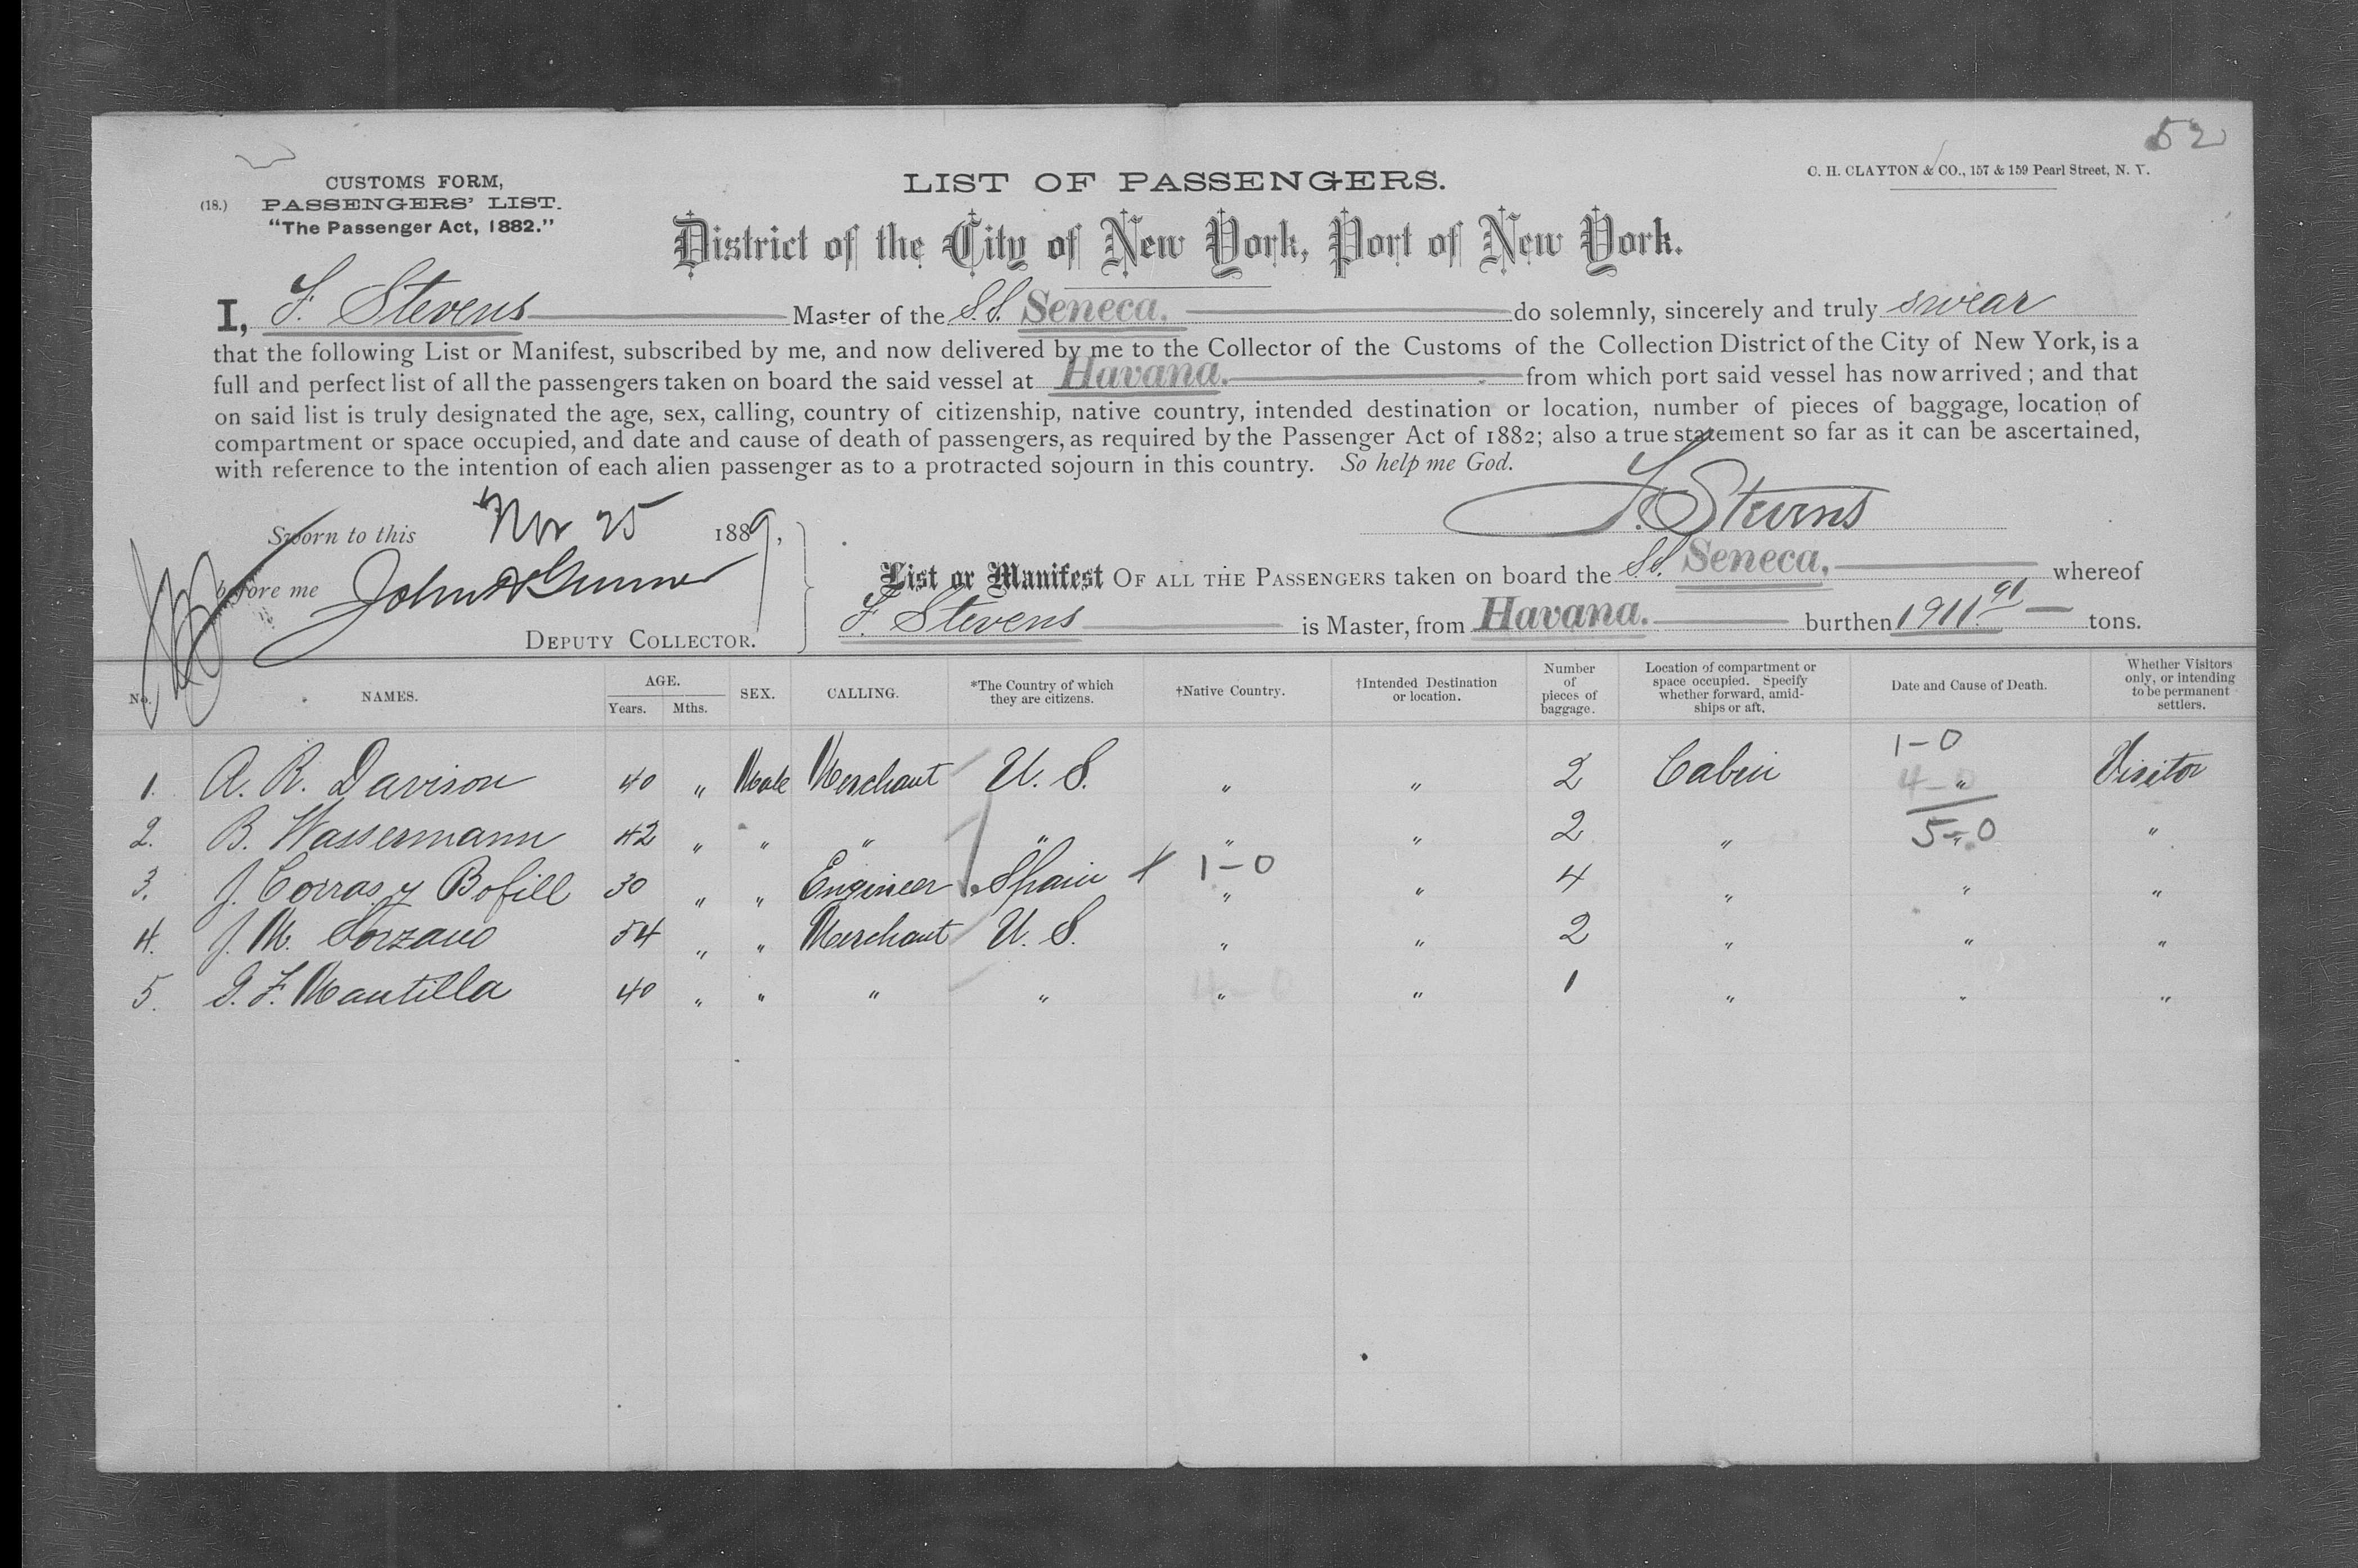 52
CUSTOMS FORM,
(18.) PASSENGERS' LIST.
"The Passenger Act, 1882."
LIST OF PASSENGERS.
C. H. CLAYTON & CO., 157 & 159 Pearl Street, N. Y.
District of the City of New York, Port of New York.
I, F. Stevens Master of the S.S. Seneca. do solemnly, sincerely and truly swear
that the following List or Manifest, subscribed by me, and now delivered by me to the Collector of the Customs of the Collection District of the City of New York, is a
full and perfect list of all the passengers taken on board the said vessel at Havana. from which port said vessel has now arrived; and that
on said list is truly designated the age, sex, calling, country of citizenship, native country, intended destination or location, number of pieces of baggage, location of
compartment or space occupied, and date and cause of death of passengers, as required by the Passenger Act of 1882; also a true statement so far as it can be ascertained,
with reference to the intention of each alien passenger as to a protracted sojourn in this country. So help me God.
F. Stevens
Sworn to this Nov 25 1889,
before me John
DEPUTY COLLECTOR.
List or Manifest OF ALL THE PASSENGERS taken on board the S.S. Seneca, whereof
F. Stevens is Master, from Havana. burthen 1911.91 tons.
No. NAMES. AGE. Years. Mths. SEX. CALLING. *The Country of which they are citizens. †Native Country. †Intended Destination or location. Number of pieces of baggage. Location of compartment or space occupied. Specify whether forward, amidships or aft. Date and Cause of Death. Whether Visitors only, or intending to be permanent settlers.
1-0
1. A. R. Davison 40 " Male Merchant U. S. " " 2 Cabin 4-0 " Visitor
2. B. Wassermann 42 " " " " " " 2 " 5-0 " "
1-0
3. J. Corras y Bofill 30 " " Engineer Spain X " " 4 " " "
4. J. M. Sorzano 54 " " Merchant U. S. " " 2 " " "
5. G. F. Mantilla 40 " " " " 4-0 " " 1 " " "